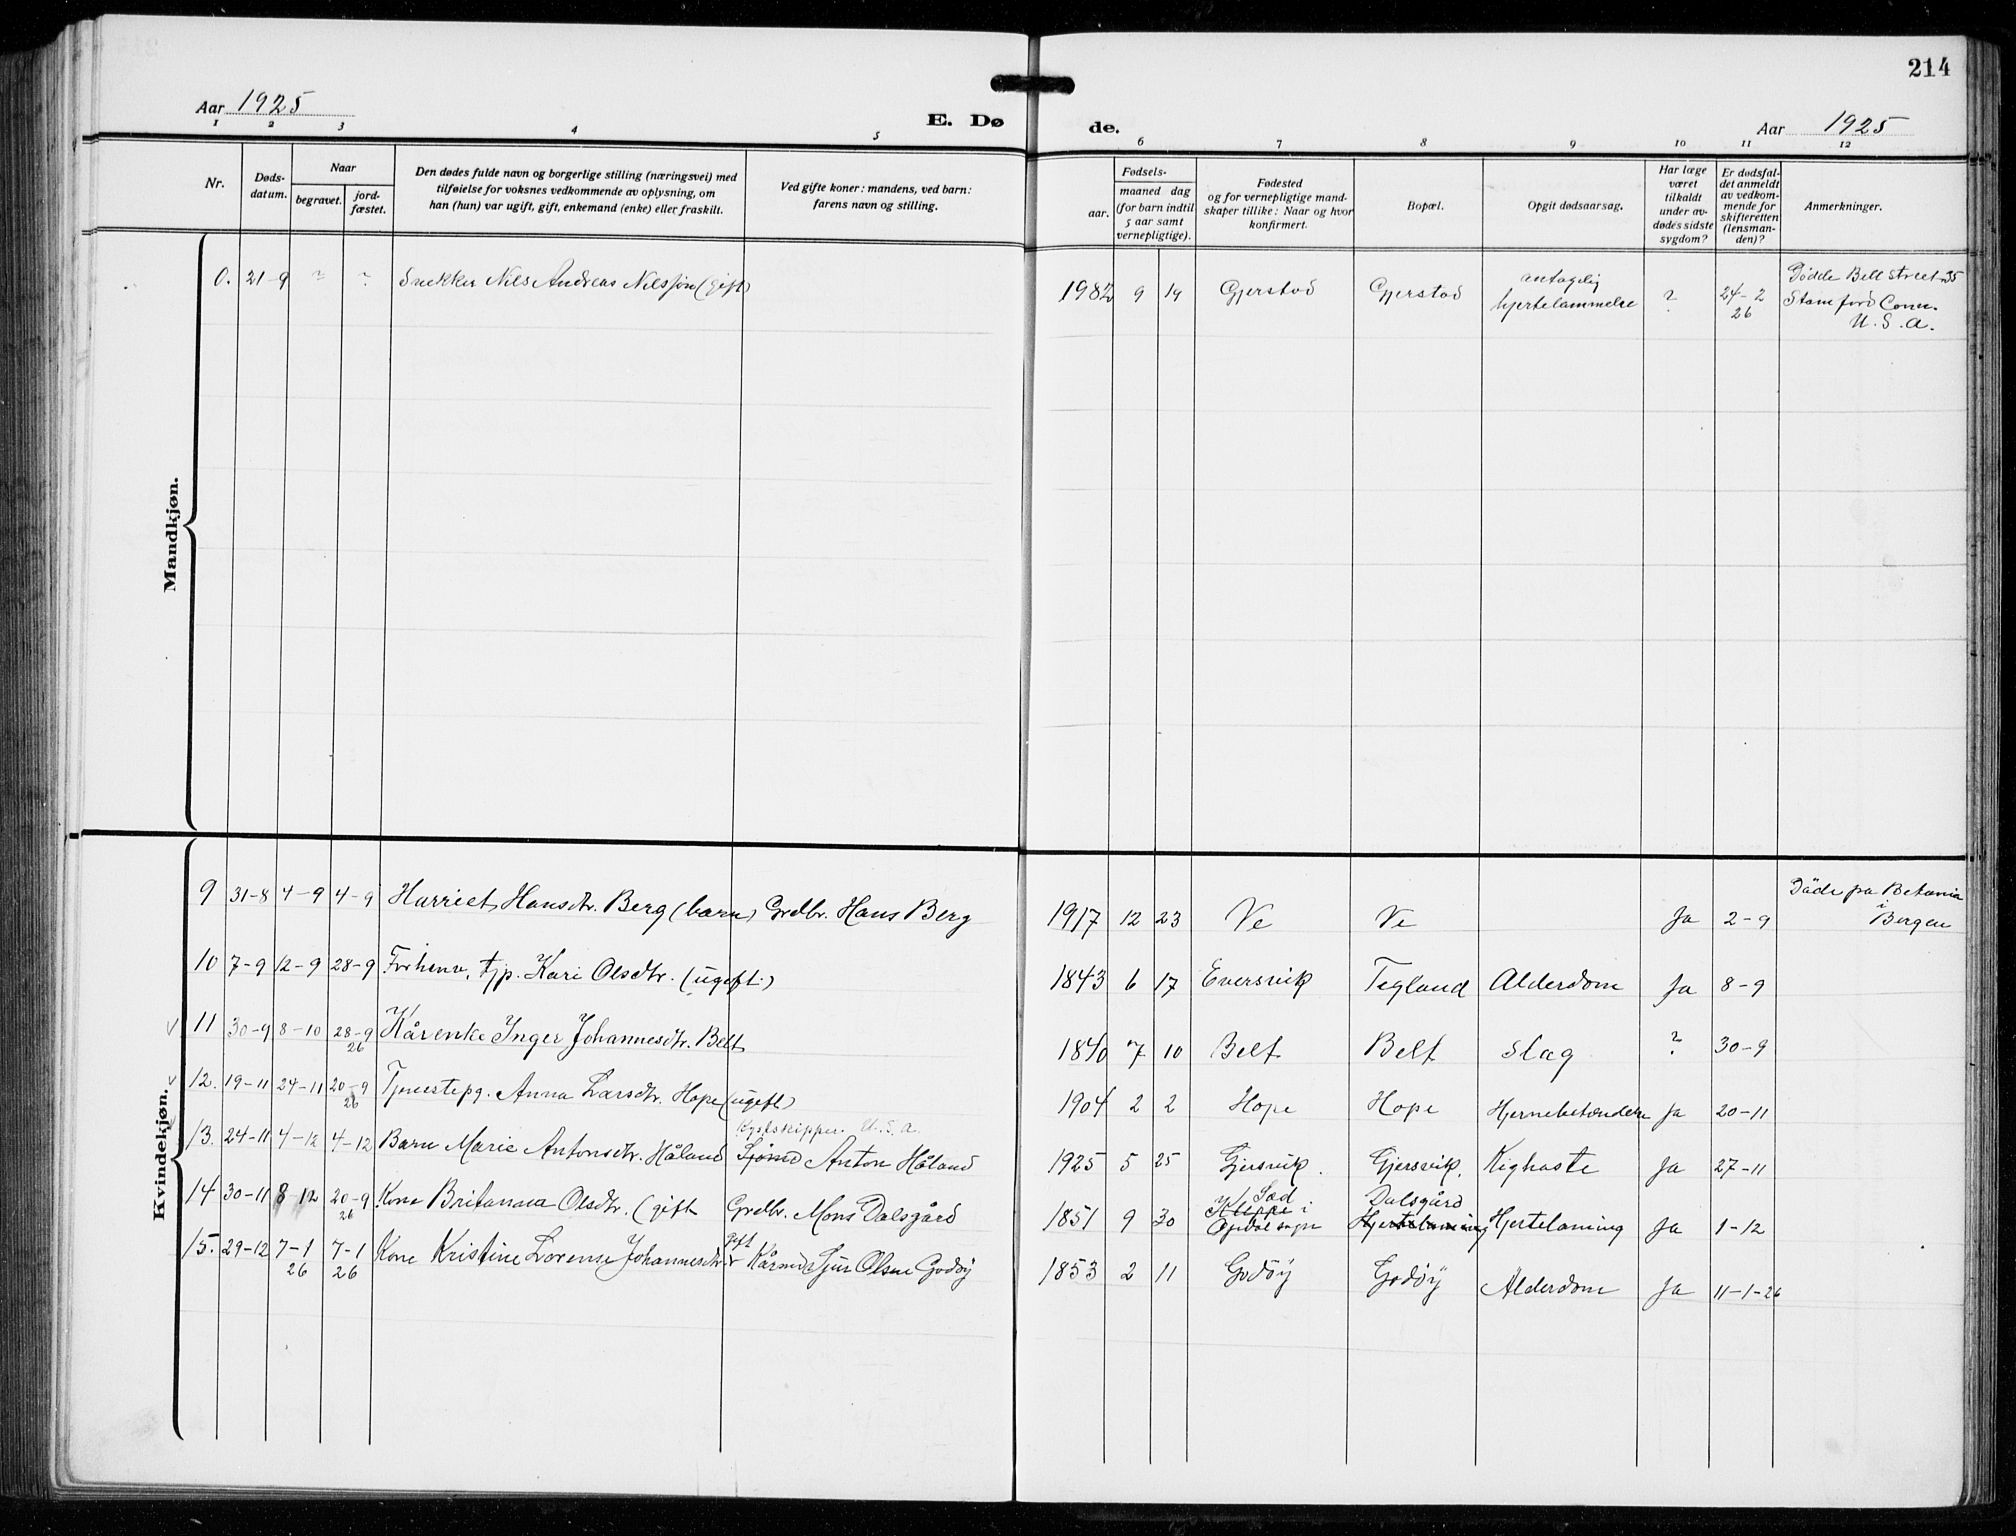 214
Aar 1925
E. Dø
de.
Aar 1925
1 2 3 4 5 6 7 8 9 10 11 12
Nr.
Døds-
datum.
Naar
begravet.
jord-
fæstet.
Den dødes fulde navn og borgerlige stilling (næringsvei) med
tilføielse for voksnes vedkommende av oplysning, om
han (hun) var ugift, gift, enkemand (enke) eller fraskilt.
Ved gifte koner: mandens, ved barn:
farens navn og stilling.
Fødsels-
aar.
maaned dag
(for barn indtil
5 aar samt
vernepligtige).
Fødested
og for vernepligtige mand-
skaper tillike: Naar og hvor
konfirmert.
Bopæl.
Opgit dødsaarsag.
Har læge
været
tilkaldt
under av-
dødes sidste
sygdom?
Er dødsfal-
det anmeldt
av vedkom-
mende for
skifteretten
(lensman-
den)?
Anmerkninger.
Mandkjøn.
0. 21-9 ? ? Snekker Nils Andreas Nilssøn (gift) 1982 9 19 Gjerstad Gjerstad antagelig hjertelammelse ? 24-2 26 Dødde Bell Street 35
Stamford Conn.
U.S.A.
Kvindekjøn.
9 31-8 4-9 4-9 Harriet Hansdtr. Berg (barn) Grdbr. Hans Berg 1917 12 23 Ve Ve Ja 2-9 Döde pa Betania
i
Bergen
10 7-9 12-9 28-9 Forhenv. tjp. Kari Olsdtr. (ugift) 1843 6 17 Eversvik Tegland Alderdom Ja 8-9
11 30-9 8-10 28-9 26 Kårenke Inger Johannesdtr. Belt 1840 7 10 Belt Belt Slag ? 30-9
12. 19-11 24-11 20-9 26 Tjenestepg. Anna Larsdtr. Hope (ugift) 1904 2 2 Hope Hope Hjernebetændelse Ja 20-11
Kystskipper U.S.A.
13. 24-11 4-12 4-12 Barn Marie Antonsdtr. Håland Sjømd Anton Håland 1925 5 25 Gjersvik. Gjersvik. Kighoste Ja 27-11
14 30-11 8-12 20-9 26 Kone Britanna Olsdtr. (gift Grdbr. Mons Dalsgård 1851 9 30 Kleppe i Opdal sogn Dalsgård Hjertelaming Hjertelaming Ja 1-12
15. 29-12 7-1 26 7-1 26 Kone Kristine Lorense Johannesdtr. gift Kårmd Sjur Olsen Godøy 1853 2 11 Godöy Godöy Alderdom Ja 11-1-26